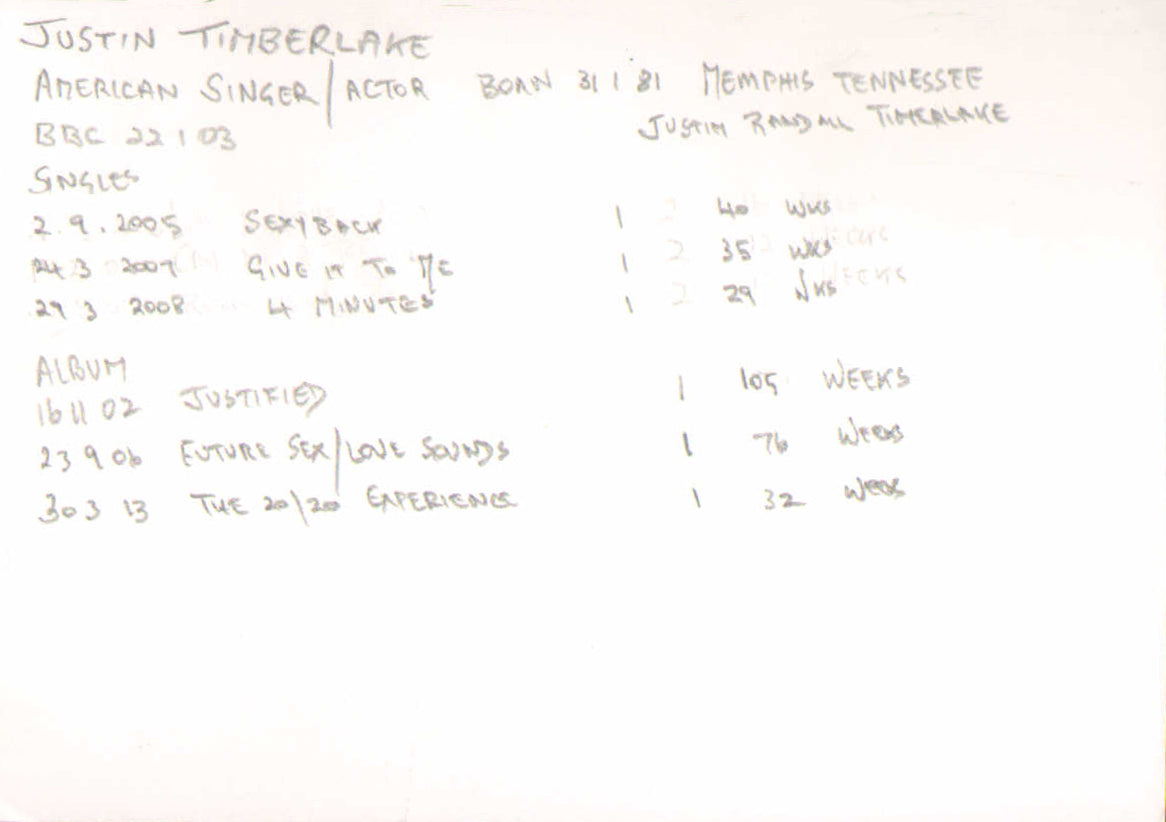 JUSTIN TIMBERLAKE
AMERICAN SINGER/ACTOR BORN 31 1 81 MEMPHIS TENNESSEE
BBC 22 1 03 JUSTIN RANDALL TIMERLAKE
SINGLES
2.9.2005 SEXYBACK 1 2 40 WKS
24 3 2007 GIVE IT TO ME 1 2 35 WKS
29 3 2008 4 MINUTES 1 2 29 WKS
ALBUM
16 11 02 JUSTIFIED 1 105 WEEKS
23 9 06 FUTURE SEX/LOVE SOUNDS 1 76 WEEKS
30 3 13 THE 20/20 EXPERIENCE 1 32 WEEKS